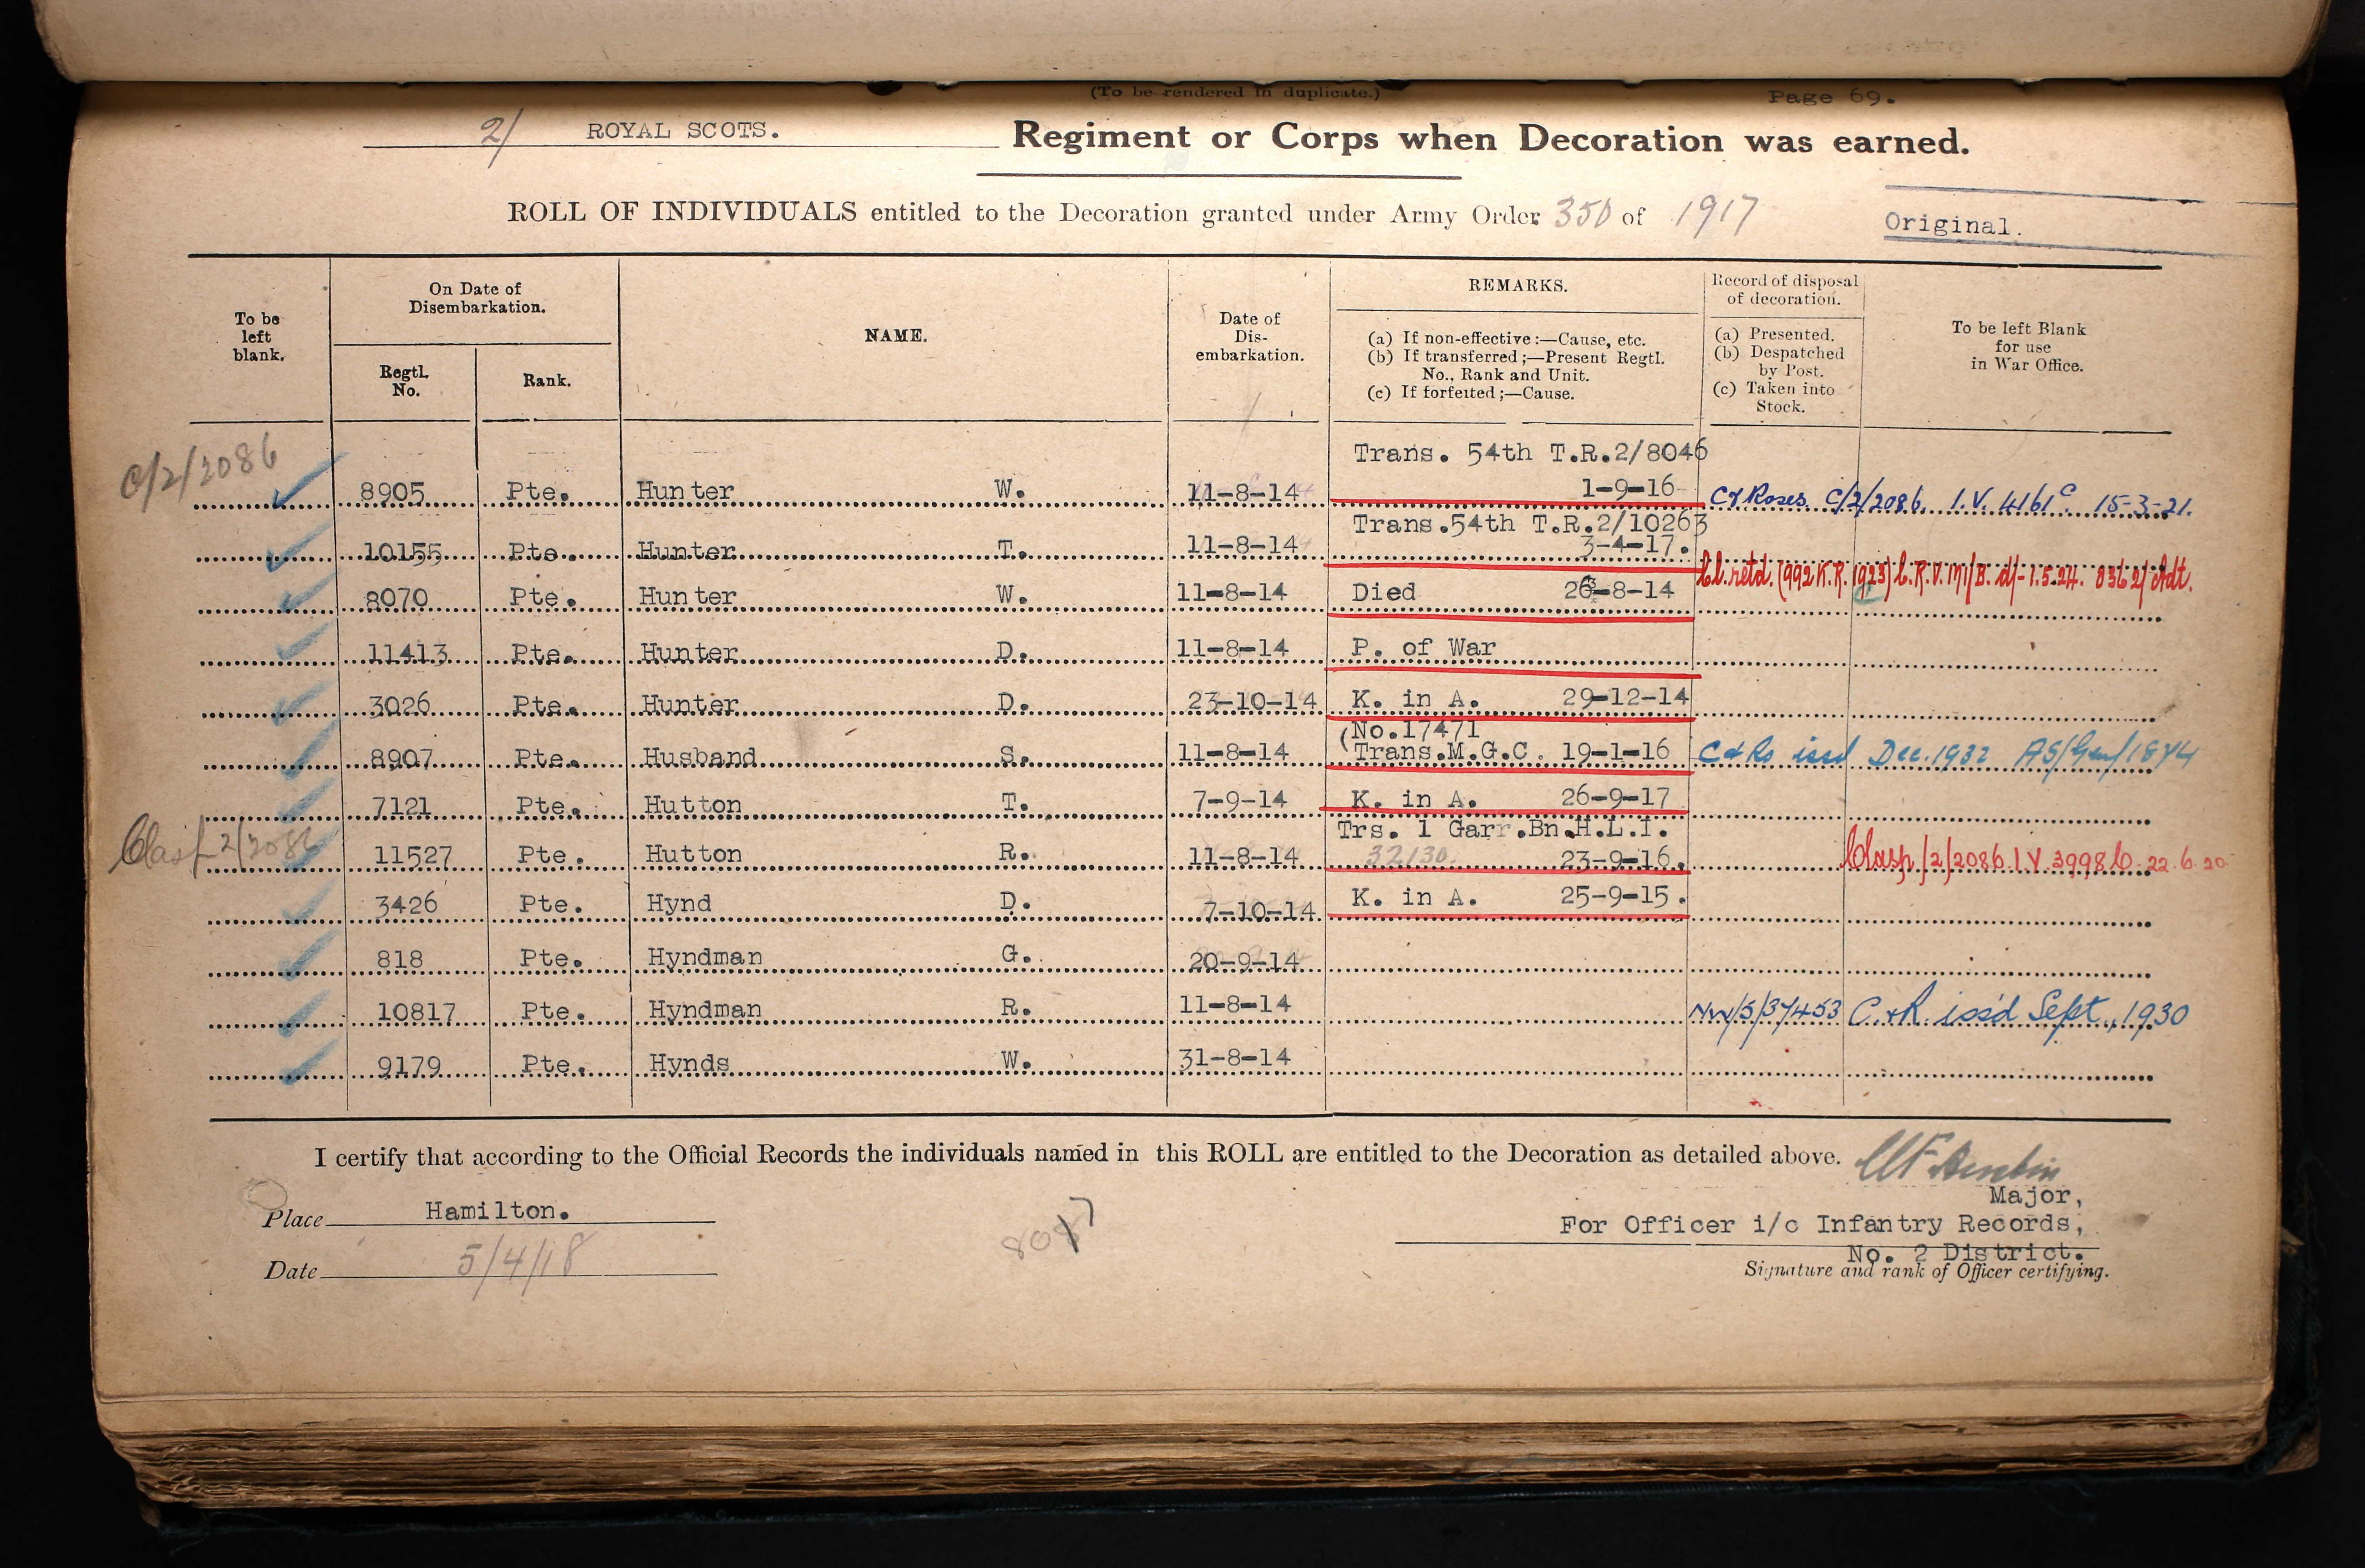 (To be rendered in duplicate.)
Page 69.
2/ ROYAL SCOTS. Regiment or Corps when Decoration was earned.
ROLL OF INDIVIDUALS entitled to the Decoration granted under Army Order 350 of 1917
Original.
To be left blank.
On Date of Disembarkation.
Regtl. No.
Rank.
NAME.
Date of Dis-embarkation.
REMARKS.
(a) If non-effective:—Cause, etc.
(b) If transferred;—Present Regtl. No., Rank and Unit.
(c) If forfeited;—Cause.
Record of disposal of decoration.
(a) Presented.
(b) Despatched by Post.
(c) Taken into Stock.
To be left Blank for use in War Office.
C/2/2086
Trans. 54th T.R.2/8046
8905 Pte. Hunter W. 11-8-14 1-9-16 C & Roses C/2/2086 I.V. 4161c 15-3-21.
Trans.54th T.R.2/10263
10155 Pte. Hunter T. 11-8-14 3-4-17.
Cl. retd. (992 K.R. 1923) C.R.V. 171/B. d/- 1.5.24. 0362/Adt.
8070 Pte. Hunter W. 11-8-14 Died 26-8-14
11413 Pte. Hunter D. 11-8-14 P. of War
3026 Pte. Hunter D. 23-10-14 K. in A. 29-12-14
(No.17471
8907 Pte. Husband S. 11-8-14 (Trans.M.G.C. 19-1-16 C & Rs issd Dec. 1932 AS/Gen/1874
7121 Pte. Hutton T. 7-9-14 K. in A. 26-9-17
Trs. 1 Garr.Bn.H.L.I.
Clasp 2/2086 11527 Pte. Hutton R. 11-8-14 32130 23-9-16. Clasp/2/2086 I.V. 3998 b 22.6.20
3426 Pte. Hynd D. 7-10-14 K. in A. 25-9-15.
818 Pte. Hyndman G. 20-9-14
10817 Pte. Hyndman R. 11-8-14 NW/5/37453 C. & R. iss'd Sept., 1930
9179 Pte. Hynds W. 31-8-14
I certify that according to the Official Records the individuals named in this ROLL are entitled to the Decoration as detailed above.
Major,
Place Hamilton.
For Officer i/c Infantry Records,
No. 2 District.
Date 5/4/18
Signature and rank of Officer certifying.